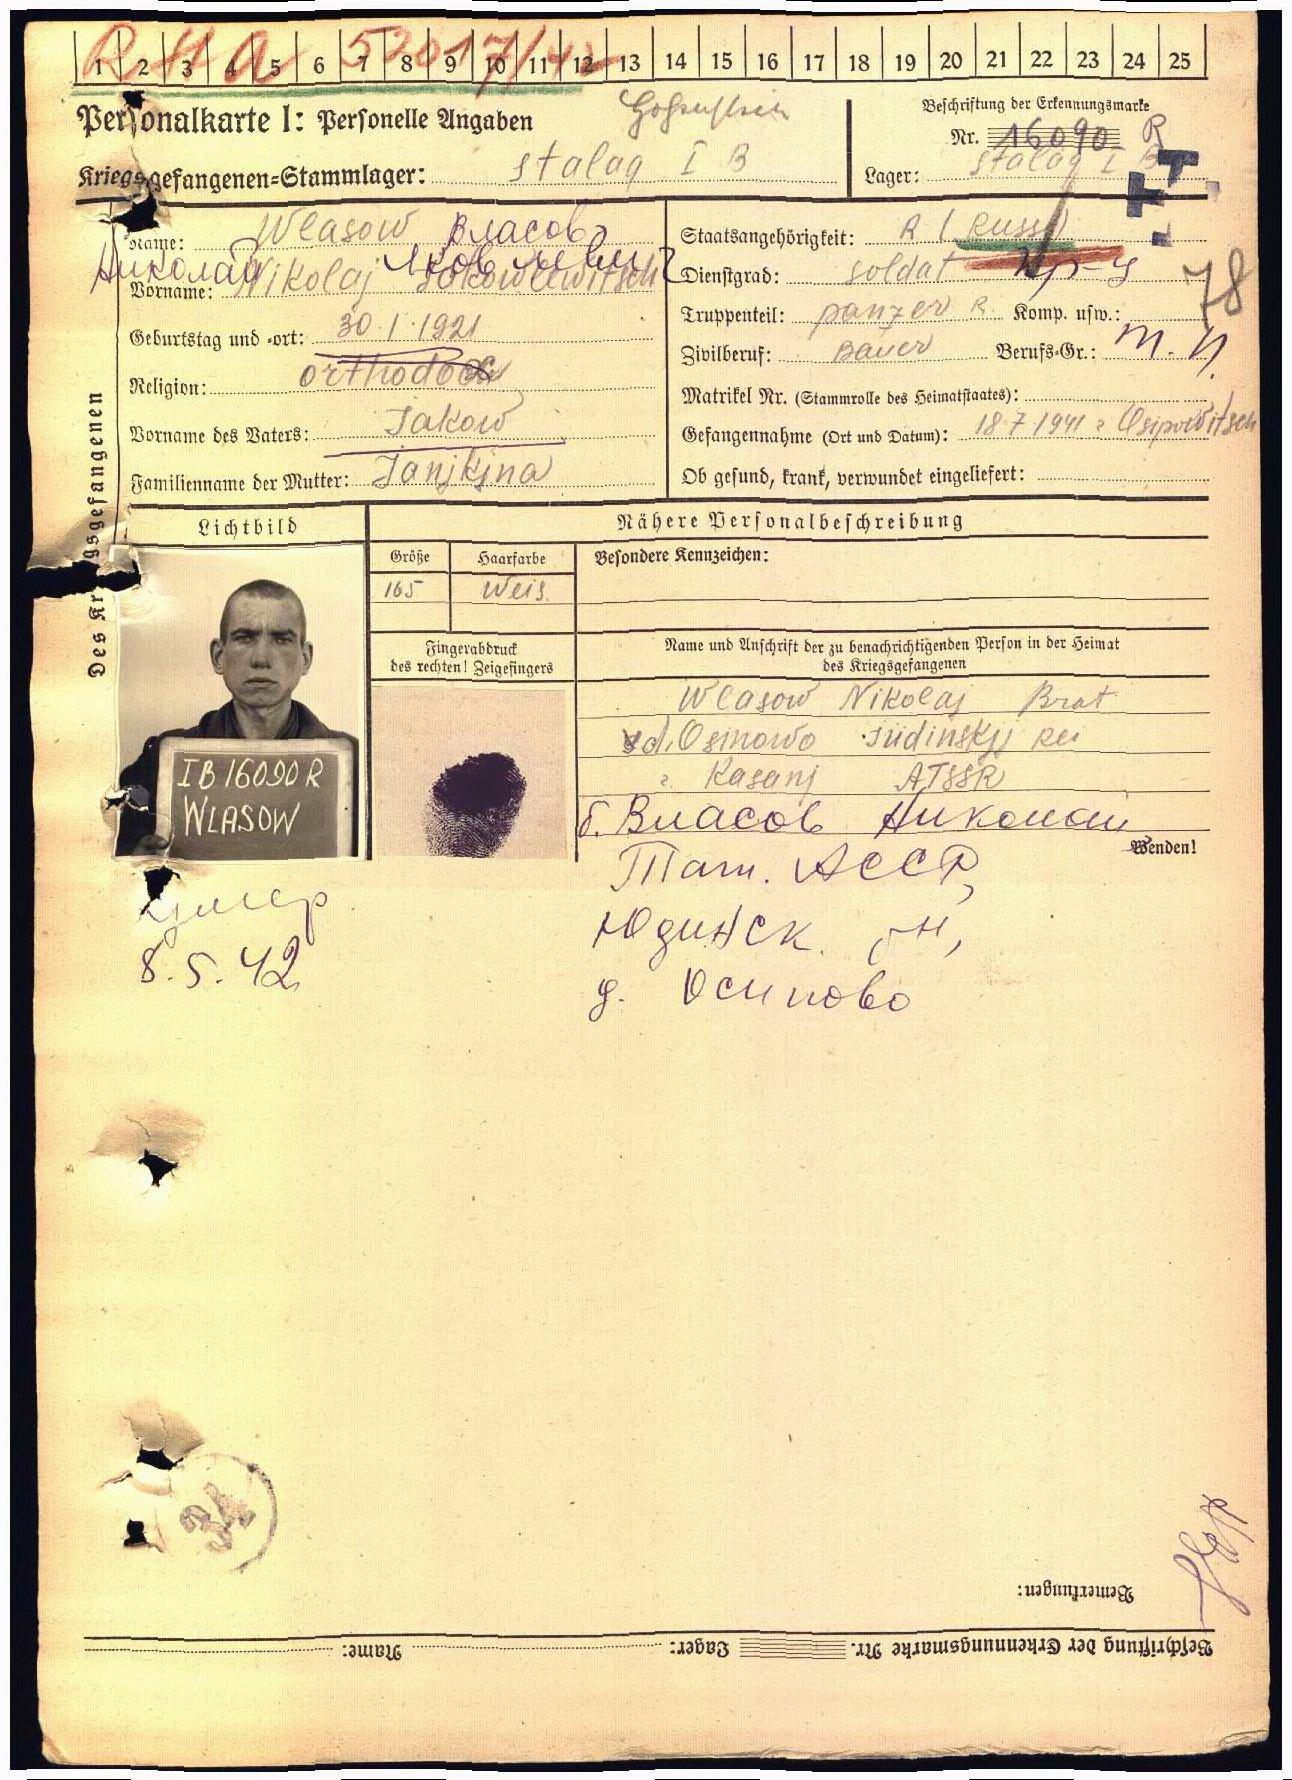 R H A 52017/42
1 2 3 4 5 6 7 8 9 10 11 12 13 14 15 16 17 18 19 20 21 22 23 24 25
Personalkarte I: Personelle Angaben
Hohenstein
Kriegsgefangenen=Stammlager: Stalag I B
Beschriftung der Erkennungsmarke
Nr. 16090 R
Lager: Stalag I B
Des Kr gsgefangenen
Name: Wlasow Власов
Николай Яковлевич
Vorname: Nikolaj Jakowlewitsch
Geburtstag und =ort: 30.1.1921
Religion: orthodox
Vorname des Vaters: Jakow
Familienname der Mutter: Janjkjna
Staatsangehörigkeit: R / Russe
Dienstgrad: soldat кр-ц
78
Truppenteil: panzer R. Komp. usw.:
Zivilberuf: Bauer Berufs=Gr.:
Matrikel Nr. (Stammrolle des Heimatstaates):
Gefangennahme (Ort und Datum): 18.7.1941 Osipowitsch
Ob gesund, krank, verwundet eingeliefert:
Lichtbild
Nähere Personalbeschreibung
Größe Haarfarbe Besondere Kennzeichen:
165 Weis.
Fingerabdruck
des rechten! Zeigefingers
Name und Anschrift der zu benachrichtigenden Person in der Heimat
des Kriegsgefangenen
Wlasow Nikolaj Brat
d. Osinowo Jüdinskjj
Kasanj ATSSR
б. Власов Николай
Wenden!
Тат. АССР,
Юдинск. рн,
д. Осиново
I B 16090 R
WLASOW
умер
8.5.42
34
Bemerkungen:
Beschriftung der Erkennungsmarke Nr. Lager: Name: